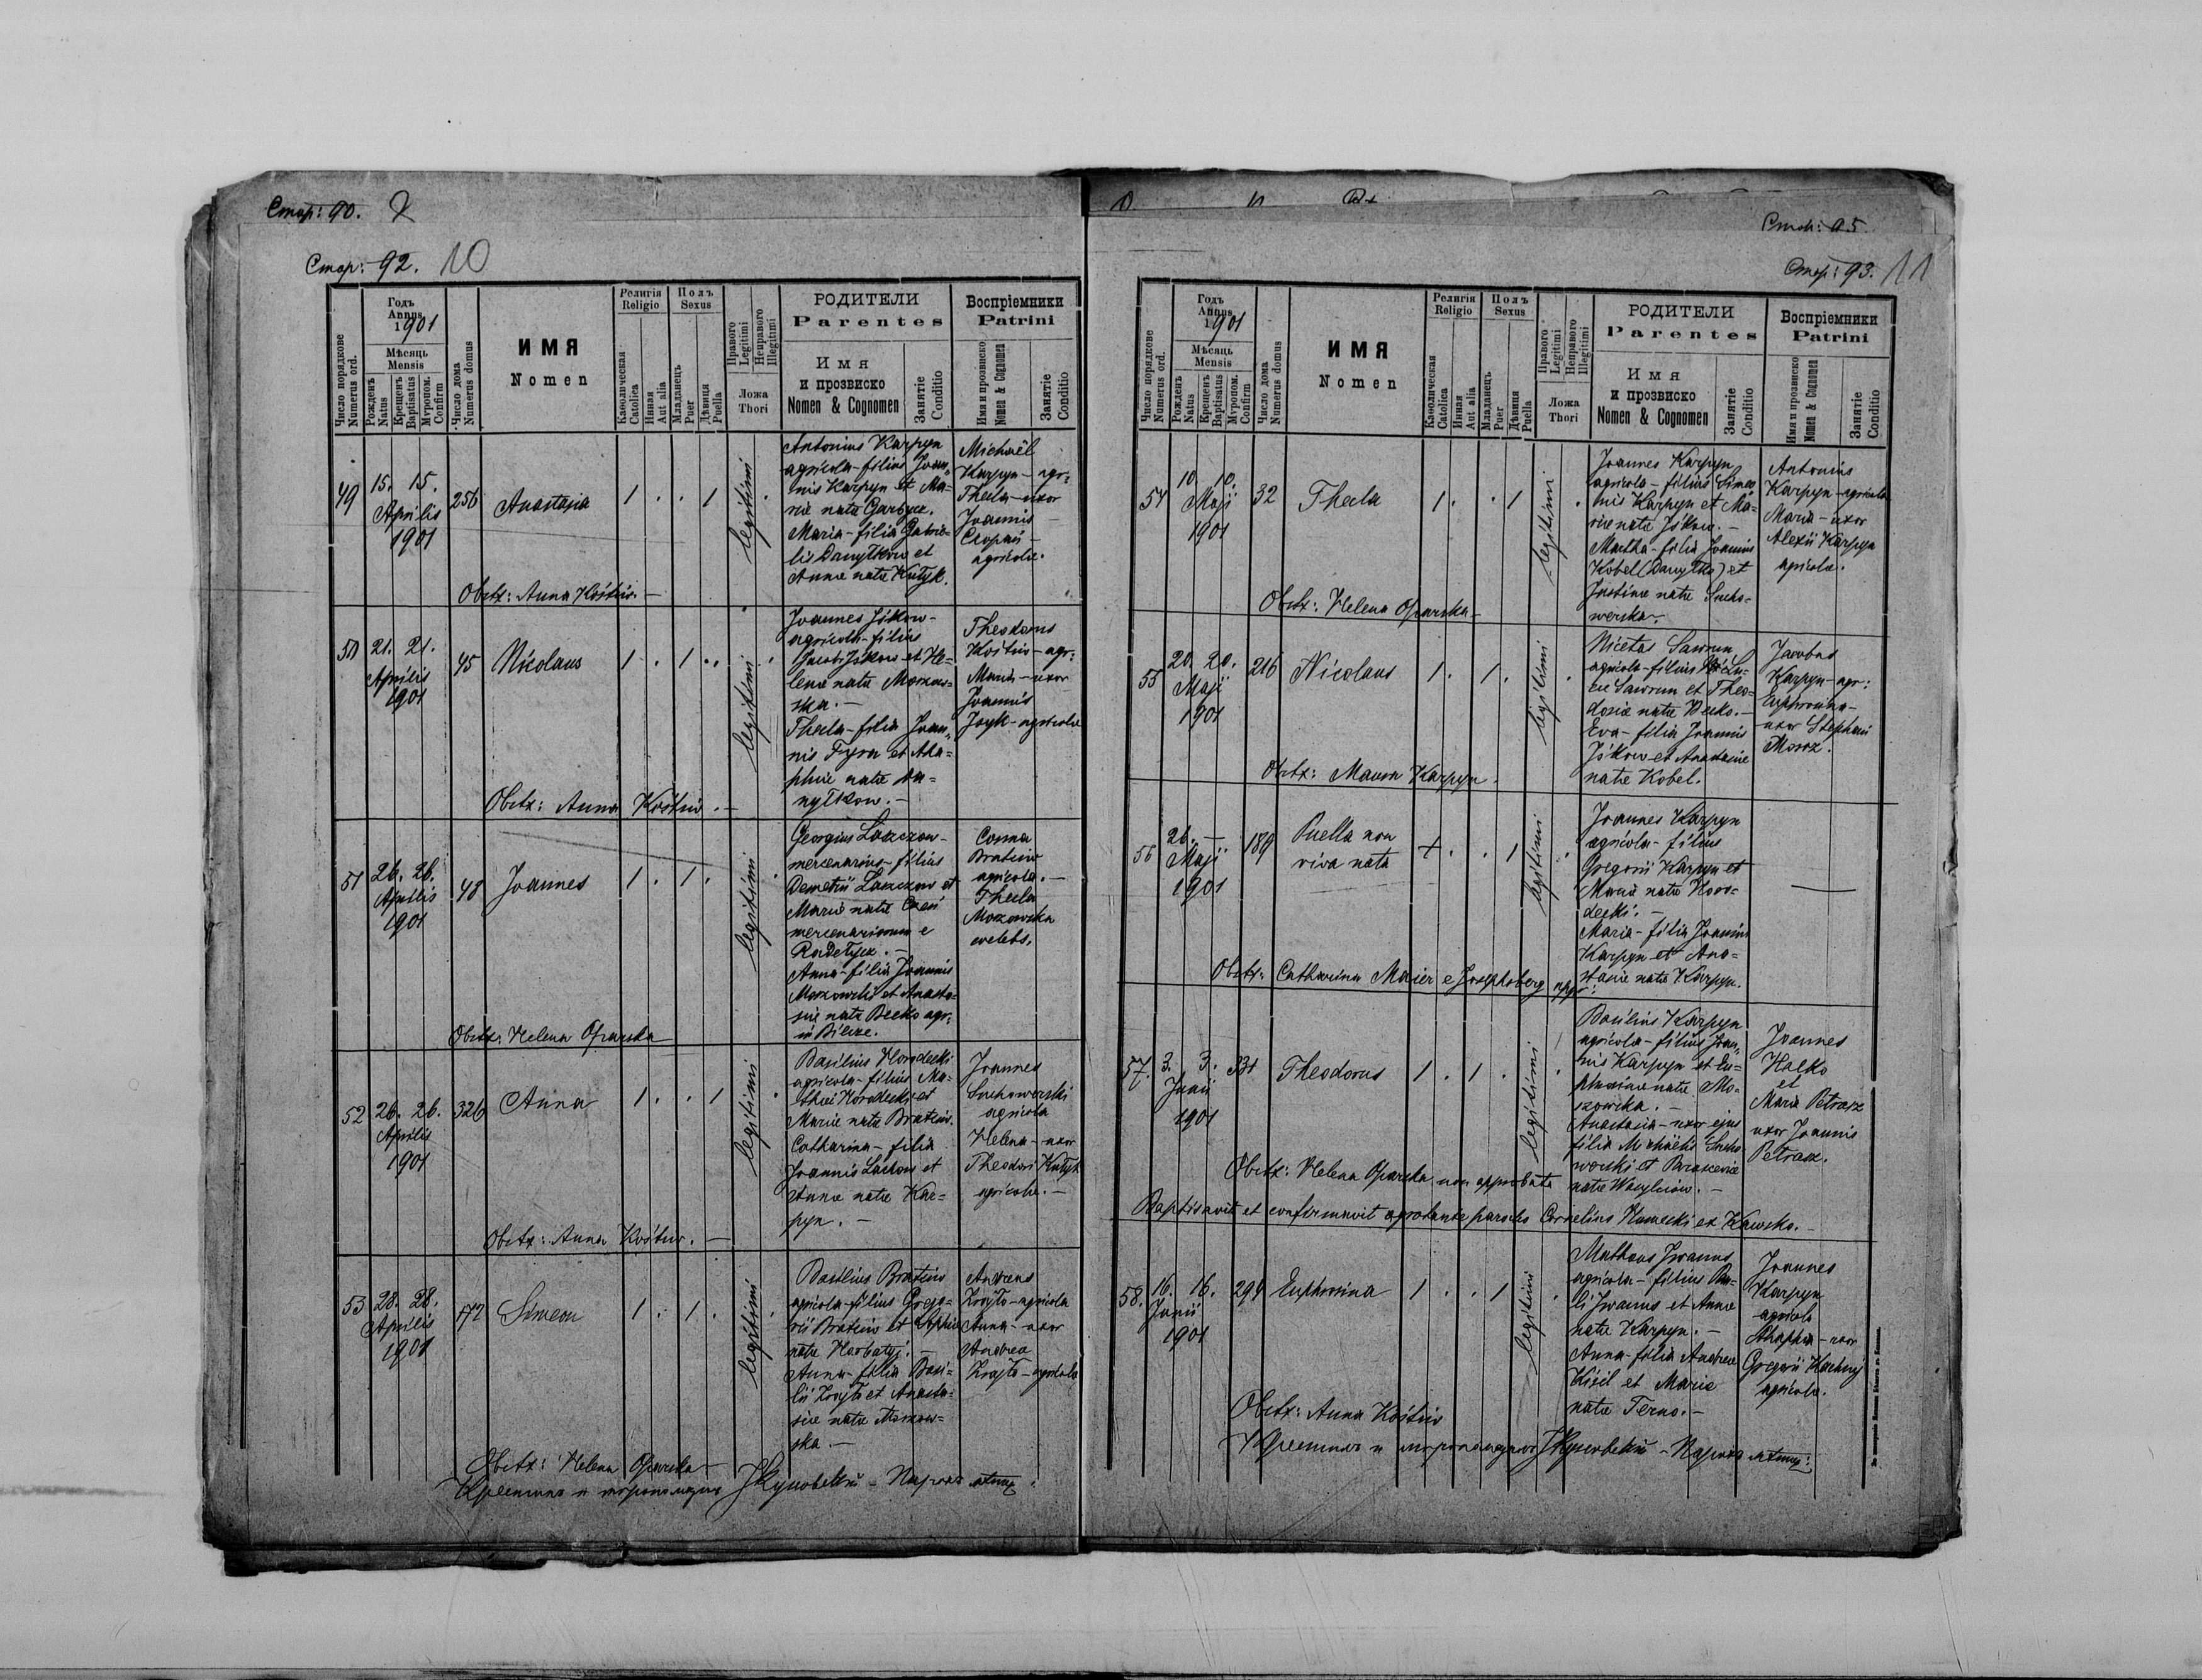 Стор: 90.
Стор: 92. 10
Число порядкове
Numerus ord.
Годъ
Annus
1901
Мѣсяць
Mensis
Рожденъ
Natus
Крещенъ
Baptisatus
Мѵропом.
Confirm
Число дома
Numerus domus
ИМЯ
Nomen
Религія
Religio
Каѳолическая
Catolica
Инная
Aut alia
Полъ
Sexus
Младанецъ
Puer
Дѣвиця
Puella
Правого
Legitimi
Неправого
Illegitimi
Ложа
Thori
РОДИТЕЛИ
Parentes
Имя
и прозвиско
Nomen & Cognomen
Занятіе
Conditio
Воспріемники
Patrini
Имя и прозвиско
Nomen & Cognomen
Занятіе
Conditio
49
15. 15.
Aprilis
1901
256
Anastasia
1 . . 1
legitimi
Antonius Karpyn
agricola - filius Joan-
nis Karpyn et Ma-
riæ natæ Garbycz.
Maria - filia Gabrie-
lis Danyłkow et
Annæ natæ Kułyk.
Michaël
Karpyn - agr:
Thecla - uxor
Joannis
agricolæ.
Obstx: Anna Kóstiw. -
50
21. 21.
Aprilis
1901
45
Nicolaus
1 . 1 .
legitimi
Joannes Jśkow -
agricola - filius
Jacobi Jśkow et He-
lenæ natæ Moszow-
ska. -
Thecla - filia Joan-
nis Fyson et Aha-
phiæ natæ Da-
nyłkow. -
Theodorus
Kóstiw - agr:
Maria - uxor
Joannis
agricolæ
Obstx: Anna Kóstiw. -
51
26. 26.
Aprilis
1901
48
Joannes
1 . 1 .
legitimi
Georgius Laszczow -
mercenarius - filius
Demetrii Laszczow et
Mariæ natæ
mercenariorum e
Radełycz. -
Anna - filia Joannis
Moszowski et Anasta-
siæ natæ Becko agr:
in Bilcze.
Cosma
Bratciw
agricola. -
Thecla
Moszowska
coelebs.
Obstx: Helena Oparska
52
26. 26.
Aprilis
1901
326
Anna
1 . . 1
legitimi
Basilius Horodecki
agricola - filius Ma-
thæi Horodecki et
Mariæ natæ Bratciw.
Catharina - filia
Joannis Lackow et
Annæ natæ Kar-
pyn. -
Joannes
Suchowerski
agricola
Helena - uxor
Theodori Kułyk
agricolæ. -
Obstx: Anna Kóstiw. -
53
28. 28.
Aprilis
1901
172
Simeon
1 . 1 .
legitimi
Basilius Bratciw
agricola - filius Grego-
rii Bratciw et
natæ Horbatyj. -
Anna - filia Basi-
lii Zrajło et Anasta-
siæ natæ Moszow-
ska. -
Andreas
Zrajło - agricola
Anna - uxor
Andreæ
Zrajło - agricolæ
Obstx: Helena Oparska -
Крестилъ и миропомазалъ - Парохъ мѣстц.
Стор: 95.
Стор: 93. 11
Число порядкове
Numerus ord.
Годъ
Annus
1901
Мѣсяць
Mensis
Рожденъ
Natus
Крещенъ
Baptisatus
Мѵропом.
Confirm
Число дома
Numerus domus
ИМЯ
Nomen
Религія
Religio
Каѳолическая
Catolica
Инная
Aut alia
Полъ
Sexus
Младанецъ
Puer
Дѣвиця
Puella
Правого
Legitimi
Неправого
Illegitimi
Ложа
Thori
РОДИТЕЛИ
Parentes
Имя
и прозвиско
Nomen & Cognomen
Занятіе
Conditio
Воспріемники
Patrini
Имя и прозвиско
Nomen & Cognomen
Занятіе
Conditio
54
10. 10.
Maji
1901
32
Thecla
1 . . 1
legitimi
Joannes Karpyn
agricola - filius Simeo-
nis Karpyn et Ma-
riæ natæ Jśkow. -
Martha - filia Joannis
Kobel (Danyłko) et
Justinæ natæ Sucho-
werska.
Antonius
Karpyn - agricola
Maria - uxor
Alexii Karpyn
agricolæ.
Obstx: Helena Oparska -
55
20. 20.
Maji
1901
216
Nicolaus
1 . 1 .
legitimi
Nicetas Sawrun
agricola - filius Lu-
cæ Sawrun et Theo-
dosiæ natæ Becko. -
Eva - filia Joannis
Jśkow et Anastasiæ
natæ Kobel.
Jacobus
Karpyn - agr:
Euphrosina -
uxor Stephani
Moroz.
Obstx: Maria Karpyn.
56
26. -
Maji
1901
189
Puella non
viva nata
+ . . 1
legitimi
Joannes Karpyn
agricola - filius
Gregorii Karpyn et
Mariæ natæ Horo-
decki. -
Maria - filia Joannis
Karpyn et Ana-
stasiæ natæ Karpyn.
Obstx: Catharina Maier e Josephsberg appr:
57.
3. 3.
Junii
1901
331
Theodorus
1 . 1 .
legitimi
Basilius Karpyn
agricola - filius Joan-
nis Karpyn et Eu-
phrosinæ natæ Mo-
szowska. -
Anastasia - uxor ejus
filia Michaëlis Sucho-
werski et Parasceviæ
natæ Wasylciow. -
Joannes
Halko
et
Maria Petrasz
uxor Joannis
Petrasz.
Obstx: Helena Oparska non approbata
Baptisavit et confirmavit aprobante parocho Cornelius Kumecki ex Kawsko. -
58.
16. 16.
Junii
1901
299
Euphrosina
1 . . 1
legitimi
Mathæus Jwanus
agricola - filius Ba-
lii Jwanus et Annæ
natæ Karpyn. -
Anna - filia Andreæ
Kisil et Mariæ
natæ Terno. -
Joannes
Karpyn
agricola
Ahaphia - uxor
Gregorii
agricolæ.
Obstx: Anna Kóstiw
Крестилъ и миропомазалъ - Парохъ мѣстц: